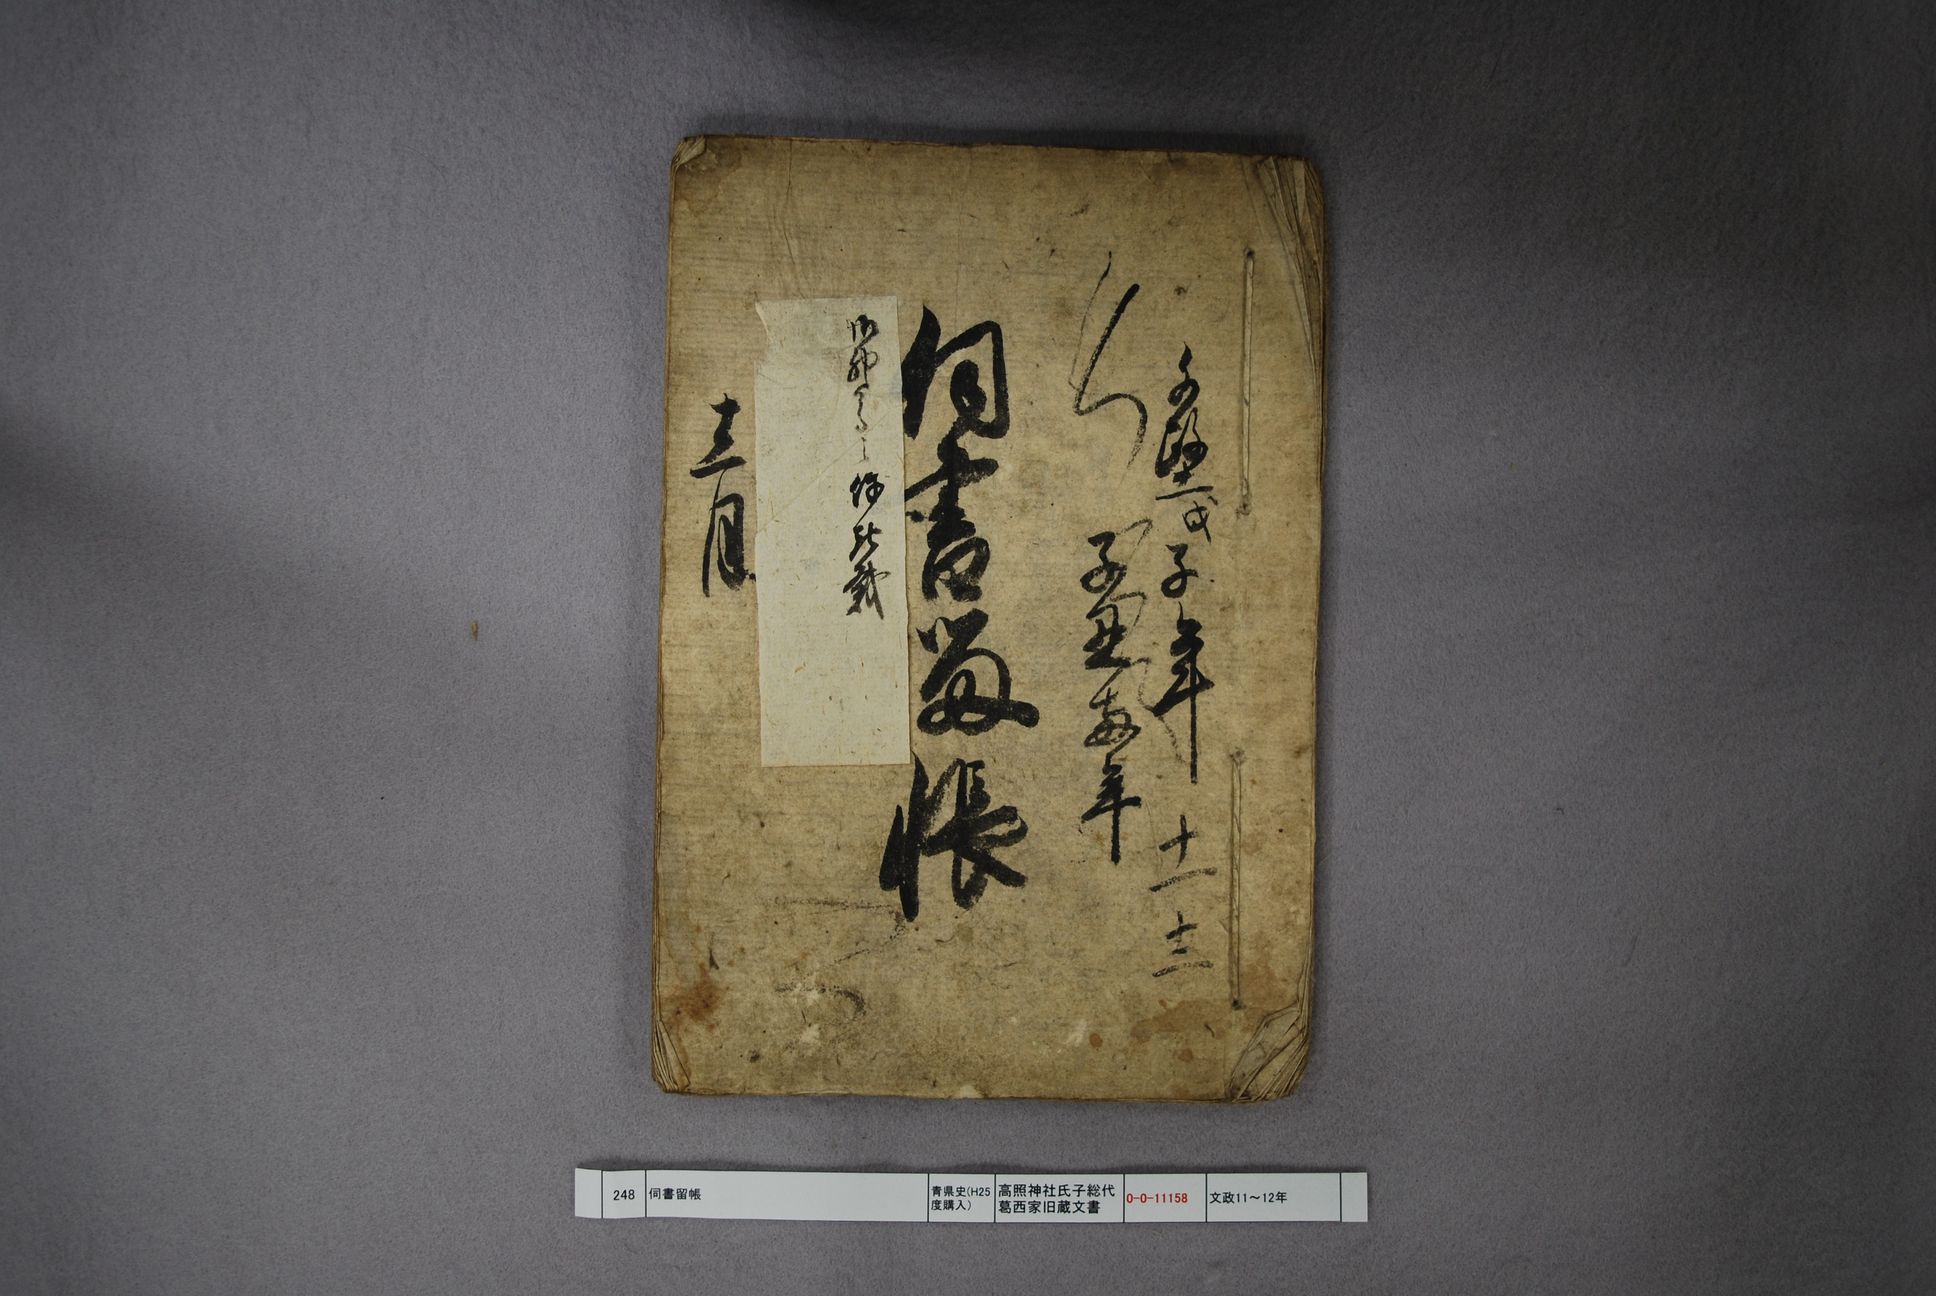 文政十一戊子年 十一 十二
子丑両年
伺書留帳
十二月
248
伺書留帳
青県史(H25
度購入)
高照神社氏子総代
葛西家旧蔵文書
0-0-11158
文政11～12年